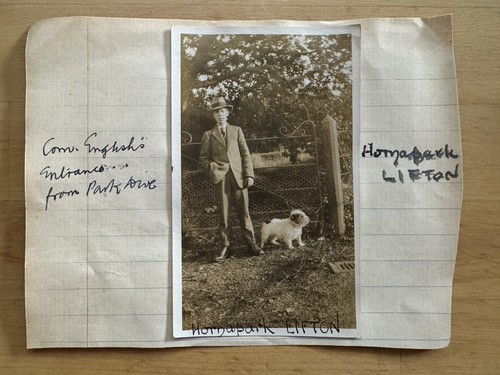 Com. English's
Entrance
from Park Ave
Hornapark
LIFTON
Hornapark LIFTON